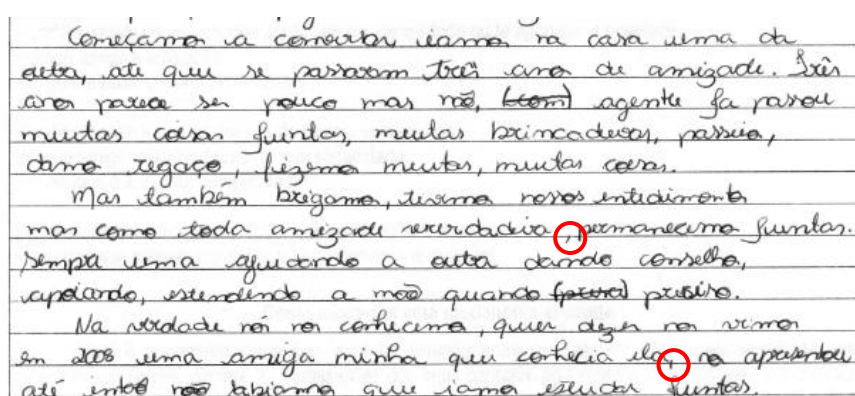 Começamos a conversar iamos na casa uma da
outra, ate que se passaram três anos de amizade. Três
anos parece ser pouco mas não, (com) agente ja passou
muitas coisas juntas, muitas brincadeiras, passeio,
damo regaço, fizemo muitas, muitas coisas.
Mas também brigamo, tivemo nossos
mas como toda amizade verdadeira, permanecemo juntas.
sempre uma ajudando a outra dando conselho,
apoiando, estendendo a mão quando preciso.
Na verdade nos nos conhecemo, quer dizer nos vimos
em 2008 uma amiga minha que conhecia ela, nos apresentou
até então não sabiamos que iamos estudar juntas.